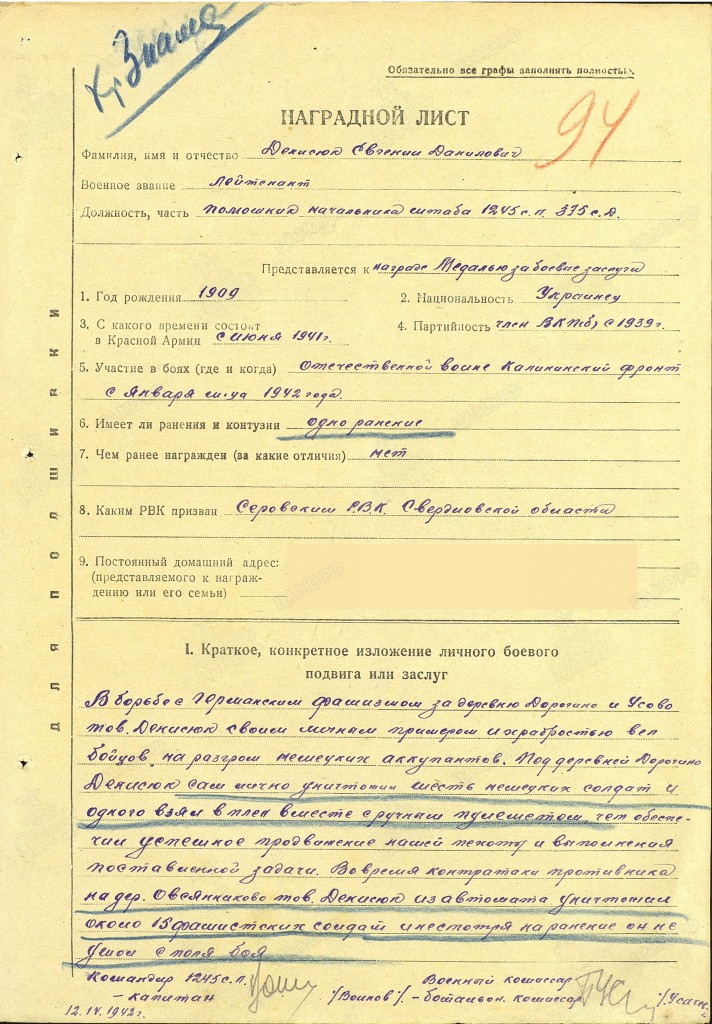 Кр Знамя
Обязательно все графы заполнять полностью.
94
НАГРАДНОЙ ЛИСТ
Фамилия, имя и отчество Денисюк Евгений Данилович
Военное звание Лейтенант
Должность, часть помошник начальника штаба 1245 с.п. 335 с.д.
Представляется к награде Медалью за боевые заслуги
1. Год рождения 1909 2. Национальность Украинец
3. С какого времени состоит
в Красной Армии с июня 1941 г. 4. Партийность член ВКП(б) с 1939 г.
5. Участие в боях (где и когда) Отечественной воине Калининский фронт
с Января м-ца 1942 года.
6. Имеет ли ранения и контузии одно ранение
7. Чем ранее награжден (за какие отличия) нет
8. Каким РВК призван Серовским Р.В.К. Свердловской области
9. Постоянный домашний адрес:
(представляемого к награж-
дению или его семьи)
для подшивки
I. Краткое, конкретное изложение личного боевого
подвига или заслуг
В борьбе с Германским фашизмом за деревню Дорогино и Усово
тов. Денисюк своим личным примером и храбростью вел
бойцов, на разгром немецких аккупантов. Под деревней Дорогино
Денисюк сам лично уничтожил шесть немецких солдат и
одного взял в плен вместе с ручным пулеметом, чем обеспе-
чил успешное продвижение нашей пехоты и выполнения
поставленной задачи. Во время контратаки противника
на дер. Овсянниково тов. Денисюк из автомата уничтожил
около 15 фашистских солдат и несмотря на ранение он не
ушол с поля боя
Командир 1245 с.п. Военный комиссар
- капитан /Воинов/ - батальон. комиссар /Усачев
12.IV.1942 г.